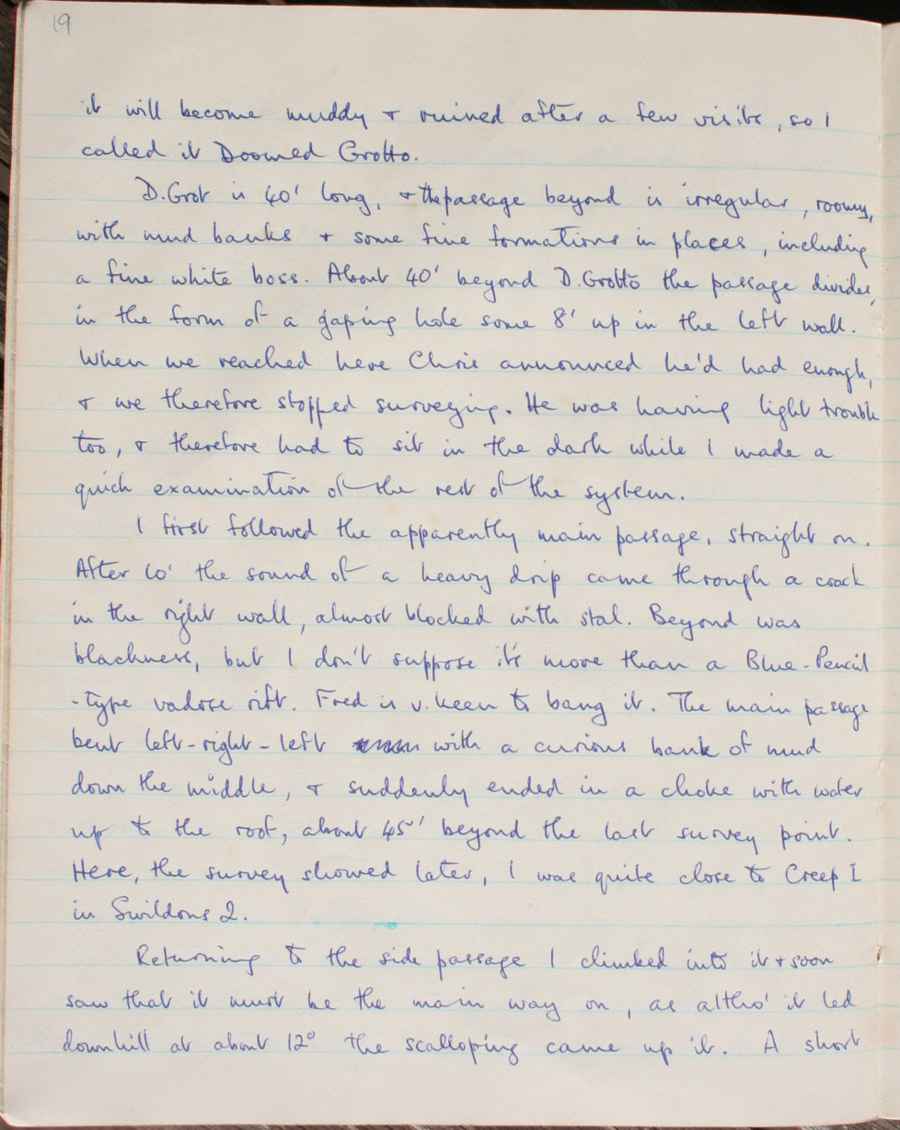 19
it will become muddy & ruined after a few visits, so I
called it Doomed Grotto.
D.Grot is 40' long, & the passage beyond is irregular, roomy,
with mud banks & some fine formations in places, including
a fine white boss. About 40' beyond D.Grotto the passage divides,
in the form of a gaping hole some 8' up in the left wall.
When we reached here Chris announced he'd had enough,
& we therefore stopped surveying. He was having light trouble
too, & therefore had to sit in the dark while I made a
quick examination of the rest of the system.
I first followed the apparently main passage, straight on.
After 10' the sound of a heavy drip came through a crack
in the right wall, almost blocked with stal. Beyond was
blackness, but I don't suppose it's more than a Blue-Pencil
-type vadose rift. Fred is v. keen to bang it. The main passage
bent left-right-left with a curious bank of mud
down the middle, & suddenly ended in a choke with water
up to the roof, about 45' beyond the last survey point.
Here, the survey showed later, I was quite close to Creep I
in Swildons 2.
Returning to the side passage I climbed into it & soon
saw that it must be the main way on, as altho' it led
downhill at about 12° the scalloping came up it. A short